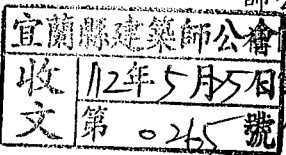 宜蘭縣建築師公會
收文
112年5月25日
第0265號